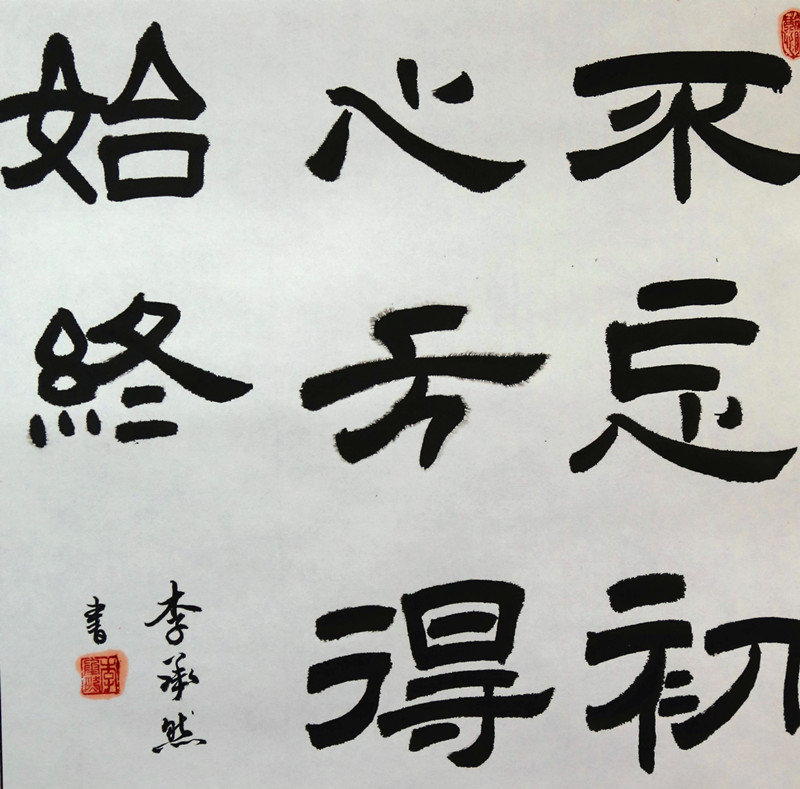 不忘初
心方得
始終
李承然
書